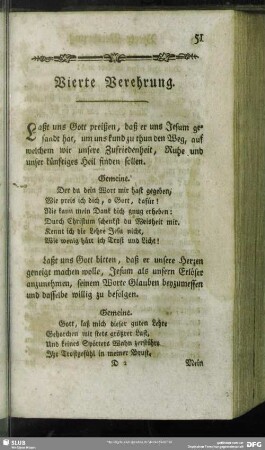 51
Vierte Verehrung.
Laßt uns Gott preißen, daß er uns Jesum ge-
sandt hat, um uns kund zu thun den Weg, auf
welchem wir unsere Zufriedenheit, Ruhe und
unser künftiges Heil finden sollen.
Gemeine.
Der du dein Wort mir hast gegeben,
Wie preis ich dich, o Gott, dafür!
Nie kann mein Dank dich gnug erheben:
Durch Christum schenkst du Weisheit mir.
Kennt ich die Lehre Jesu nicht,
Wie wenig hätt ich Trost und Licht!
Laßt uns Gott bitten, daß er unsere Herzen
geneigt machen wolle, Jesum als unsern Erlöser
anzunehmen, seinem Worte Glauben beyzumessen
und dasselbe willig zu befolgen.
Gemeine.
Gott, laß mich dieser guten Lehre
Gehorchen mit stets größrer Lust,
Und keines Spötters Wahn zerstöhre
Ihr Trostgefühl in meiner Brust,
D 2 Mein